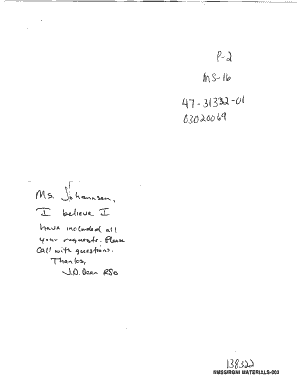 P-2
MS-16
47-31332-01
03020069
Ms. Johannsen,
I believe I
have included all
your requests. Please
call with questions.
Thanks,
J.D. Dean RSO
138322
NMSS/RGNI MATERIALS-003